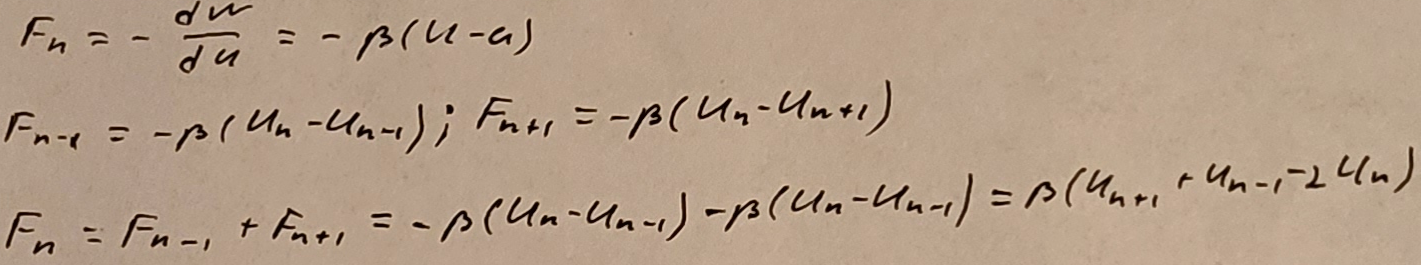 Fₙ = - dW/du = - β(u-a)
Fₙ₋₁ = -β(uₙ-uₙ₋₁); Fₙ₊₁ = -β(uₙ-uₙ₊₁)
Fₙ = Fₙ₋₁ + Fₙ₊₁ = -β(uₙ-uₙ₋₁) -β(uₙ-uₙ₋₁) = β(uₙ₊₁ + uₙ₋₁ -2uₙ)